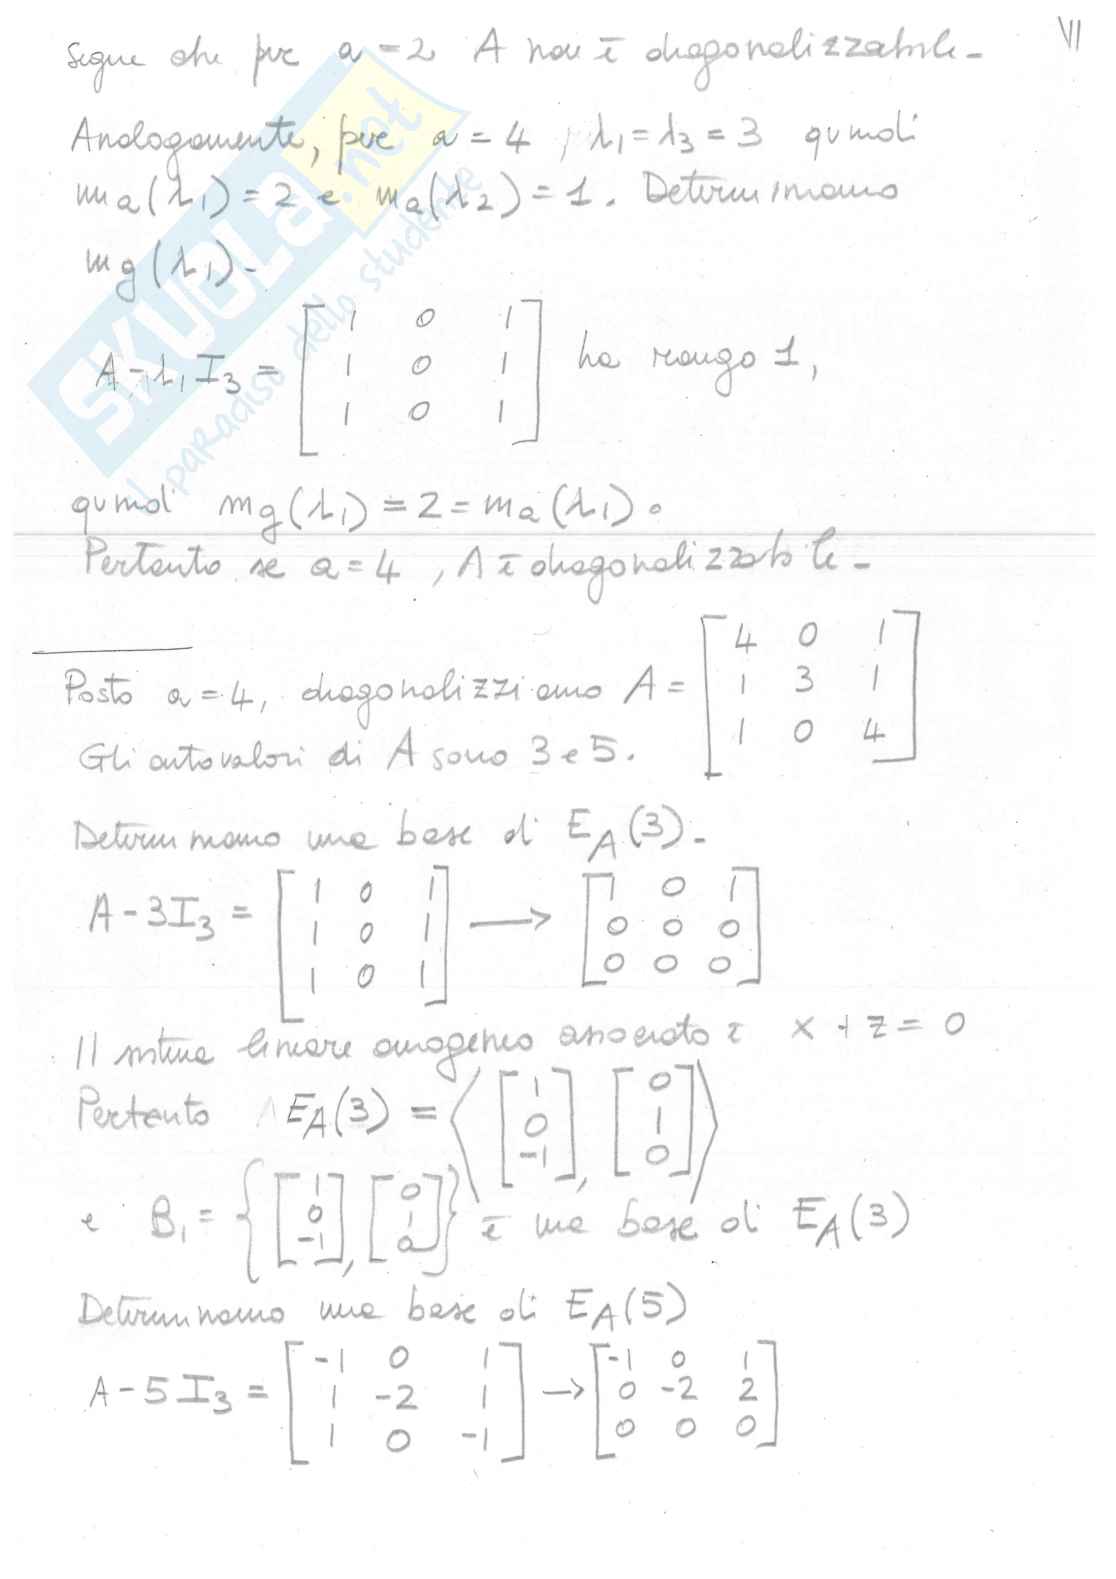 VI
Segue che per a = 2 A non è diagonalizzabile -
Analogamente, per a = 4, λ₁ = λ₃ = 3 quindi
mₐ(λ₁) = 2 e mₐ(λ₂) = 1. Determiniamo
mg(λ₁) -
A - λ₁ I₃ = [1 0 1; 1 0 1; 1 0 1] ha rango 1,
quindi mg(λ₁) = 2 = mₐ(λ₁).
Pertanto se a = 4, A è diagonalizzabile -
Posto a = 4, diagonalizziamo A = [4 0 1; 1 3 1; 1 0 4]
Gli autovalori di A sono 3 e 5.
Determiniamo una base di E_A(3) -
A - 3 I₃ = [1 0 1; 1 0 1; 1 0 1] → [1 0 1; 0 0 0; 0 0 0]
Il sistema lineare omogeneo associato è x + z = 0
Pertanto E_A(3) = ⟨[1; 0; -1], [0; 1; 0]⟩
e B₁ = {[1; 0; -1], [0; 1; 0]} è una base di E_A(3)
Determiniamo una base di E_A(5)
A - 5 I₃ = [-1 0 1; 1 -2 1; 1 0 -1] → [-1 0 1; 0 -2 2; 0 0 0]
SKUOLA.net
il paradiso dello studente